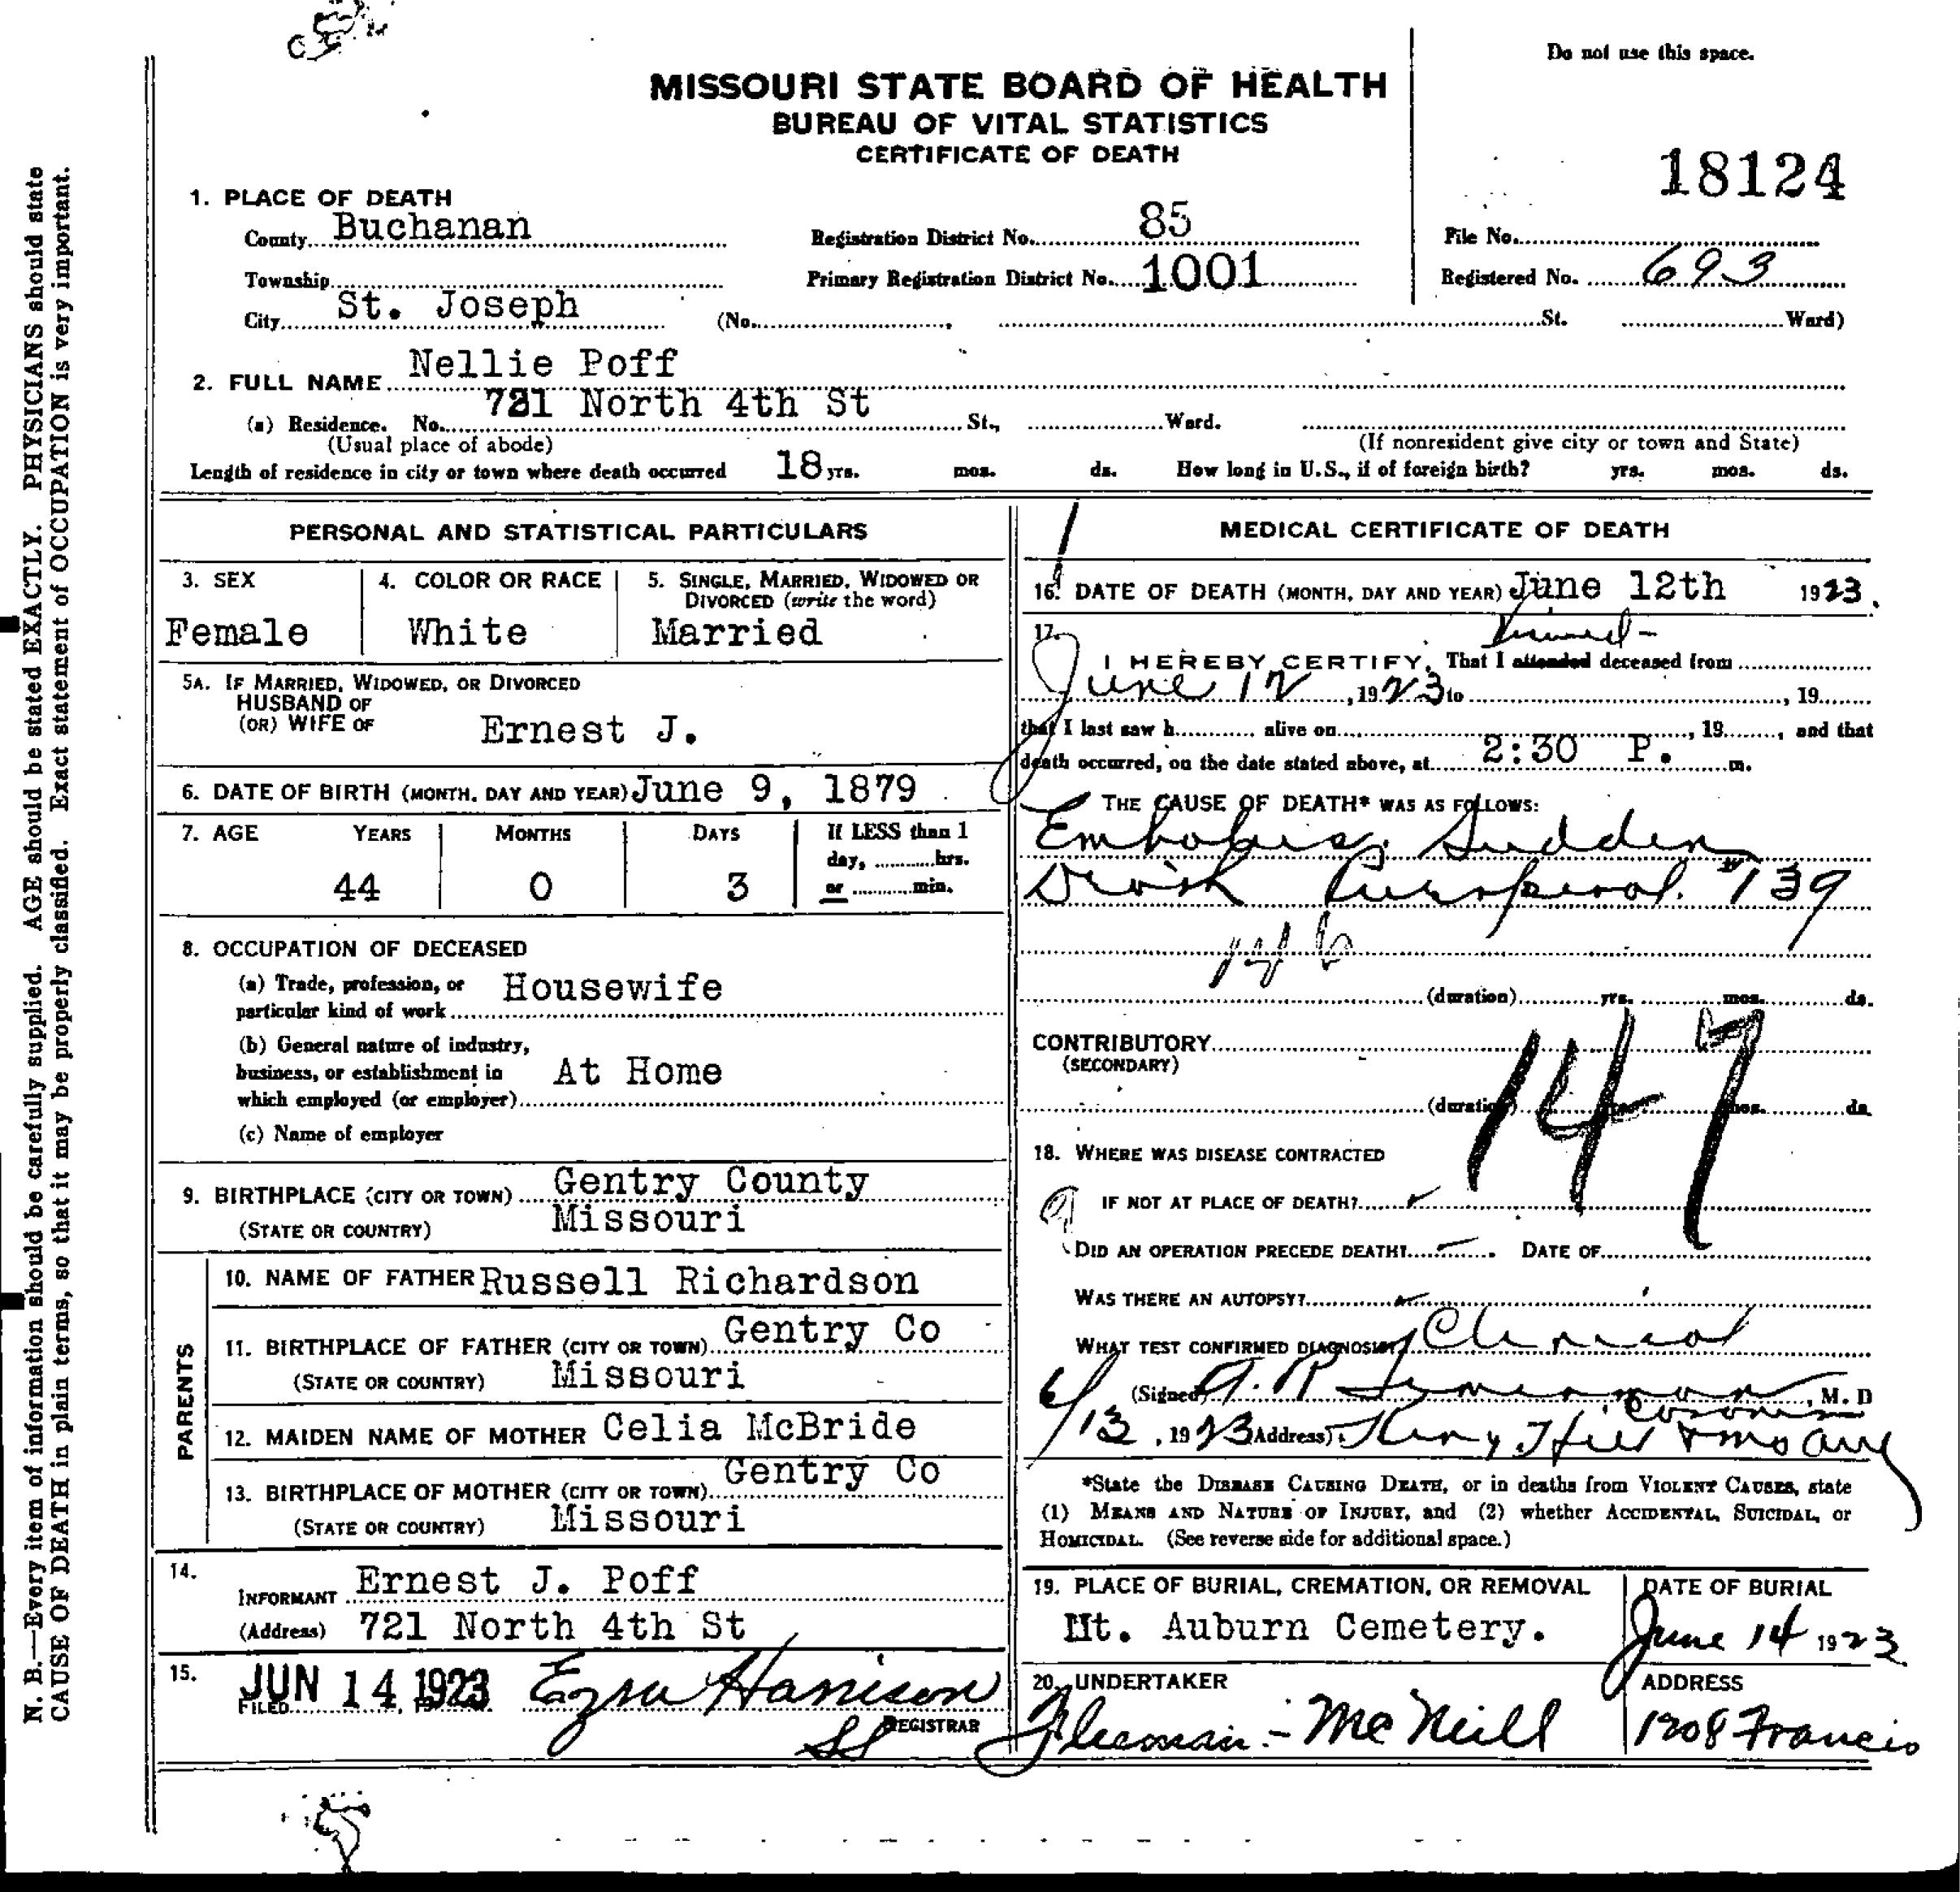 Do not use this space.
MISSOURI STATE BOARD OF HEALTH
BUREAU OF VITAL STATISTICS
CERTIFICATE OF DEATH
18124
1. PLACE OF DEATH
County Buchanan Registration District No. 85 File No.
Township Primary Registration District No. 1001 Registered No. 693
City St. Joseph (No. , St. Ward)
2. FULL NAME Nellie Poff
(a) Residence. No. 721 North 4th St St., Ward.
(Usual place of abode) (If nonresident give city or town and State)
Length of residence in city or town where death occurred 18 yrs. mos. ds. How long in U.S., if of foreign birth? yrs. mos. ds.
PERSONAL AND STATISTICAL PARTICULARS
3. SEX 4. COLOR OR RACE 5. SINGLE, MARRIED, WIDOWED OR
DIVORCED (write the word)
Female White Married
5A. IF MARRIED, WIDOWED, OR DIVORCED
HUSBAND OF
(OR) WIFE OF Ernest J.
6. DATE OF BIRTH (MONTH, DAY AND YEAR) June 9, 1879
7. AGE YEARS MONTHS DAYS If LESS than 1
day, hrs.
44 0 3 or min.
8. OCCUPATION OF DECEASED
(a) Trade, profession, or Housewife
particular kind of work
(b) General nature of industry,
business, or establishment in At Home
which employed (or employer)
(c) Name of employer
9. BIRTHPLACE (CITY OR TOWN) Gentry County
(STATE OR COUNTRY) Missouri
PARENTS
10. NAME OF FATHER Russell Richardson
11. BIRTHPLACE OF FATHER (CITY OR TOWN) Gentry Co
(STATE OR COUNTRY) Missouri
12. MAIDEN NAME OF MOTHER Celia McBride
13. BIRTHPLACE OF MOTHER (CITY OR TOWN) Gentry Co
(STATE OR COUNTRY) Missouri
14.
INFORMANT Ernest J. Poff
(Address) 721 North 4th St
15. JUN 14 1923 Ezra Harrison
FILED REGISTRAR
MEDICAL CERTIFICATE OF DEATH
16. DATE OF DEATH (MONTH, DAY AND YEAR) June 12th 1923.
17.
I HEREBY CERTIFY, That I attended deceased from
June 12, 1923 to , 19
that I last saw h alive on , 19 , and that
death occurred, on the date stated above, at 2:30 P. m.
THE CAUSE OF DEATH* WAS AS FOLLOWS:
Embolus, Sudden
Puerperal. #139
146
(duration) yrs. mos. ds.
CONTRIBUTORY
(SECONDARY)
147
(duration) yrs. mos. ds.
18. WHERE WAS DISEASE CONTRACTED
IF NOT AT PLACE OF DEATH?
DID AN OPERATION PRECEDE DEATH? DATE OF
WAS THERE AN AUTOPSY?
WHAT TEST CONFIRMED DIAGNOSIS? Clinical
(Signed) , M. D
6/13, 1923 (Address) King Hill
*State the DISEASE CAUSING DEATH, or in deaths from VIOLENT CAUSES, state
(1) MEANS AND NATURE OF INJURY, and (2) whether ACCIDENTAL, SUICIDAL, or
HOMICIDAL. (See reverse side for additional space.)
19. PLACE OF BURIAL, CREMATION, OR REMOVAL DATE OF BURIAL
Mt. Auburn Cemetery. June 14 1923
20. UNDERTAKER ADDRESS
Fleeman - McNeill 1208 Francis
N. B.—Every item of information should be carefully supplied. AGE should be stated EXACTLY. PHYSICIANS should state
CAUSE OF DEATH in plain terms, so that it may be properly classified. Exact statement of OCCUPATION is very important.